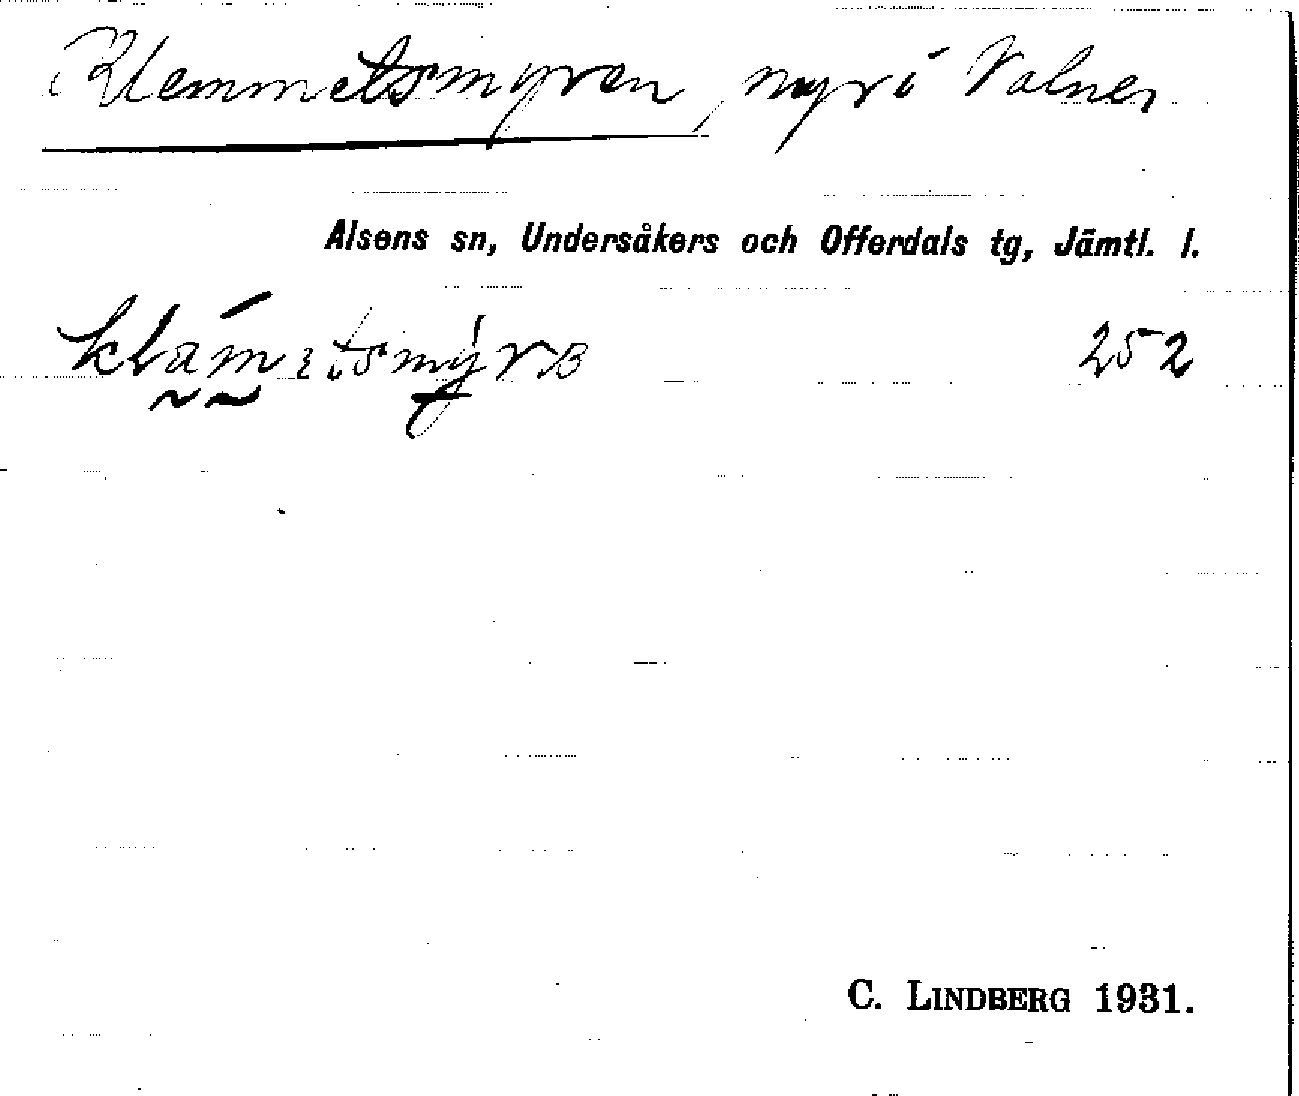 Klemmetsmyren, myr i Valne
Alsens sn, Undersåkers och Offerdals tg, Jämtl. l.
252
C. LINDBERG 1931.